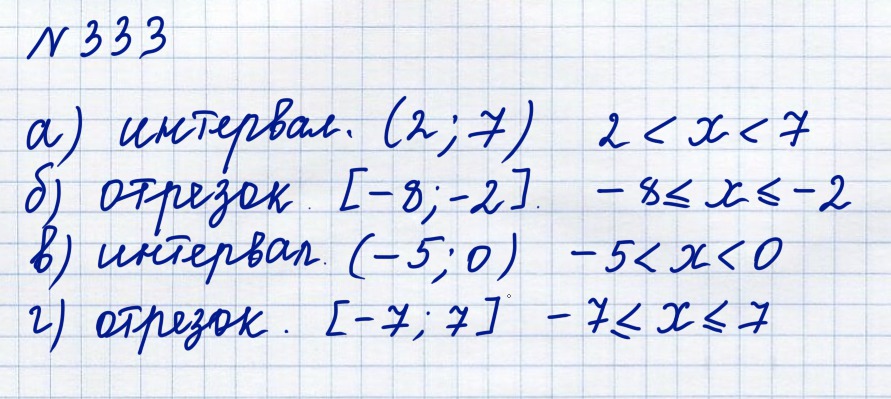 N 333
а) интервал. (2; 7) 2 < x < 7
б) отрезок. [-8; -2]. -8 ≤ x ≤ -2
в) интервал. (-5; 0) -5 < x < 0
г) отрезок. [-7; 7] -7 ≤ x ≤ 7